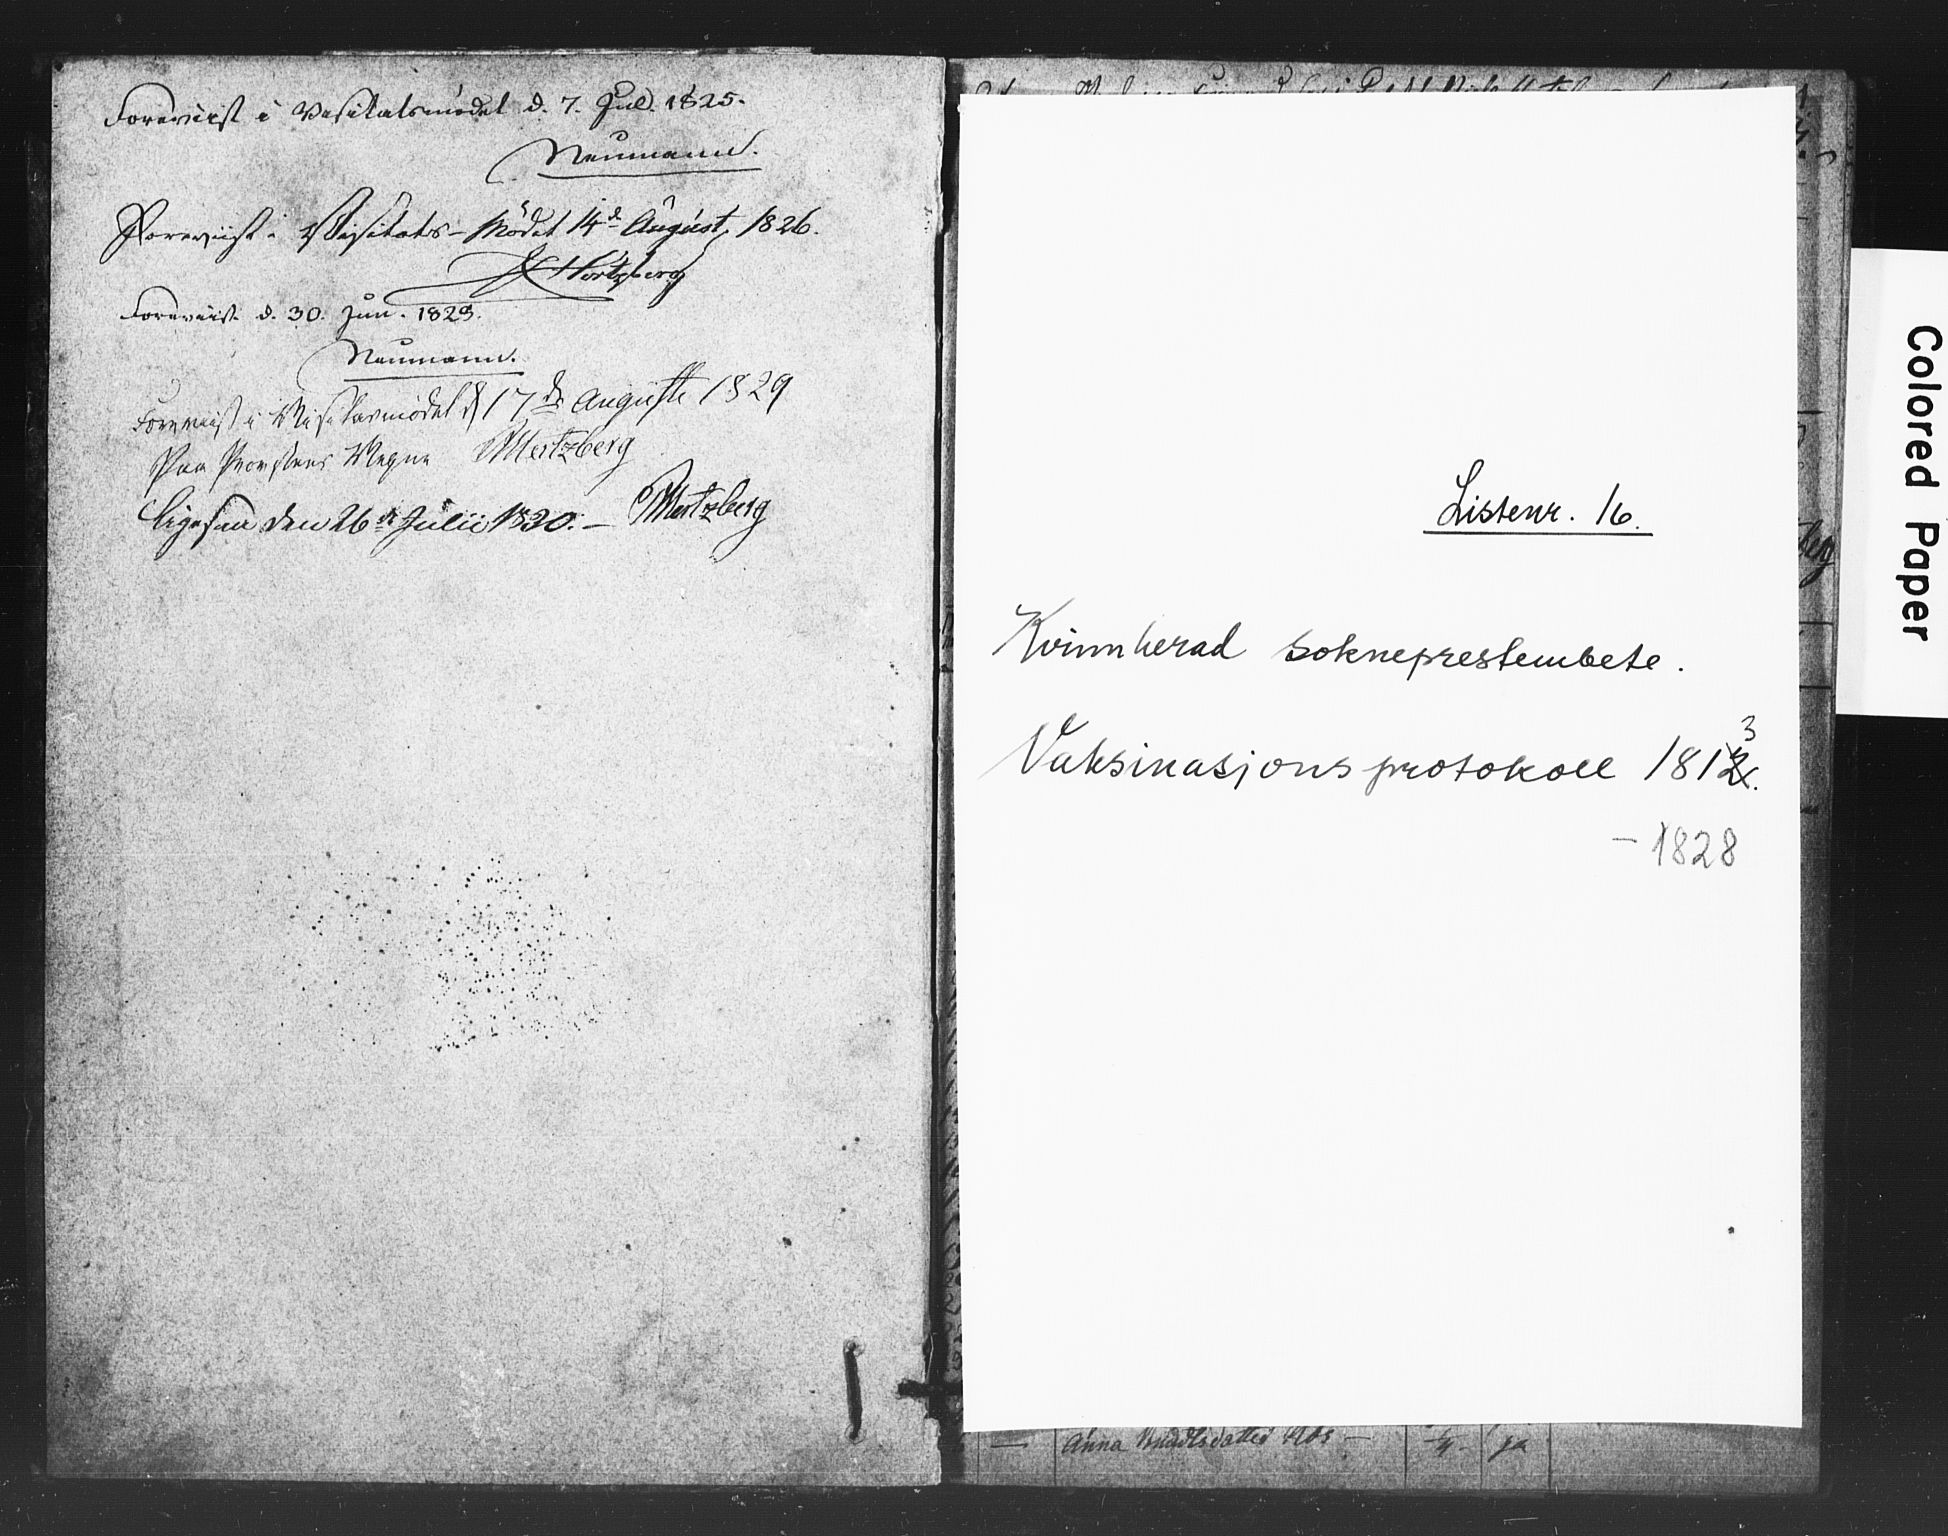 Foreviist i Visitatsmödet d. 7. Jul. 1825.
Neumann.
Foreviist i Visitats-Mödet 14de August, 1826.
Hertzberg
Foreviist d. 30. Jun. 1828.
Neumann.
Foreviist i Visitasmödet d 17de Auguste 1829
Paa Provstens Vegne Mertzberg
Ligesaa den 26de Julii 1830. — Mertzberg
Listenr. 16.
Kvinnherad sokneprestembete.
Vaksinasjonsprotokoll 1813.
- 1828
Colored Paper
Anna
ja